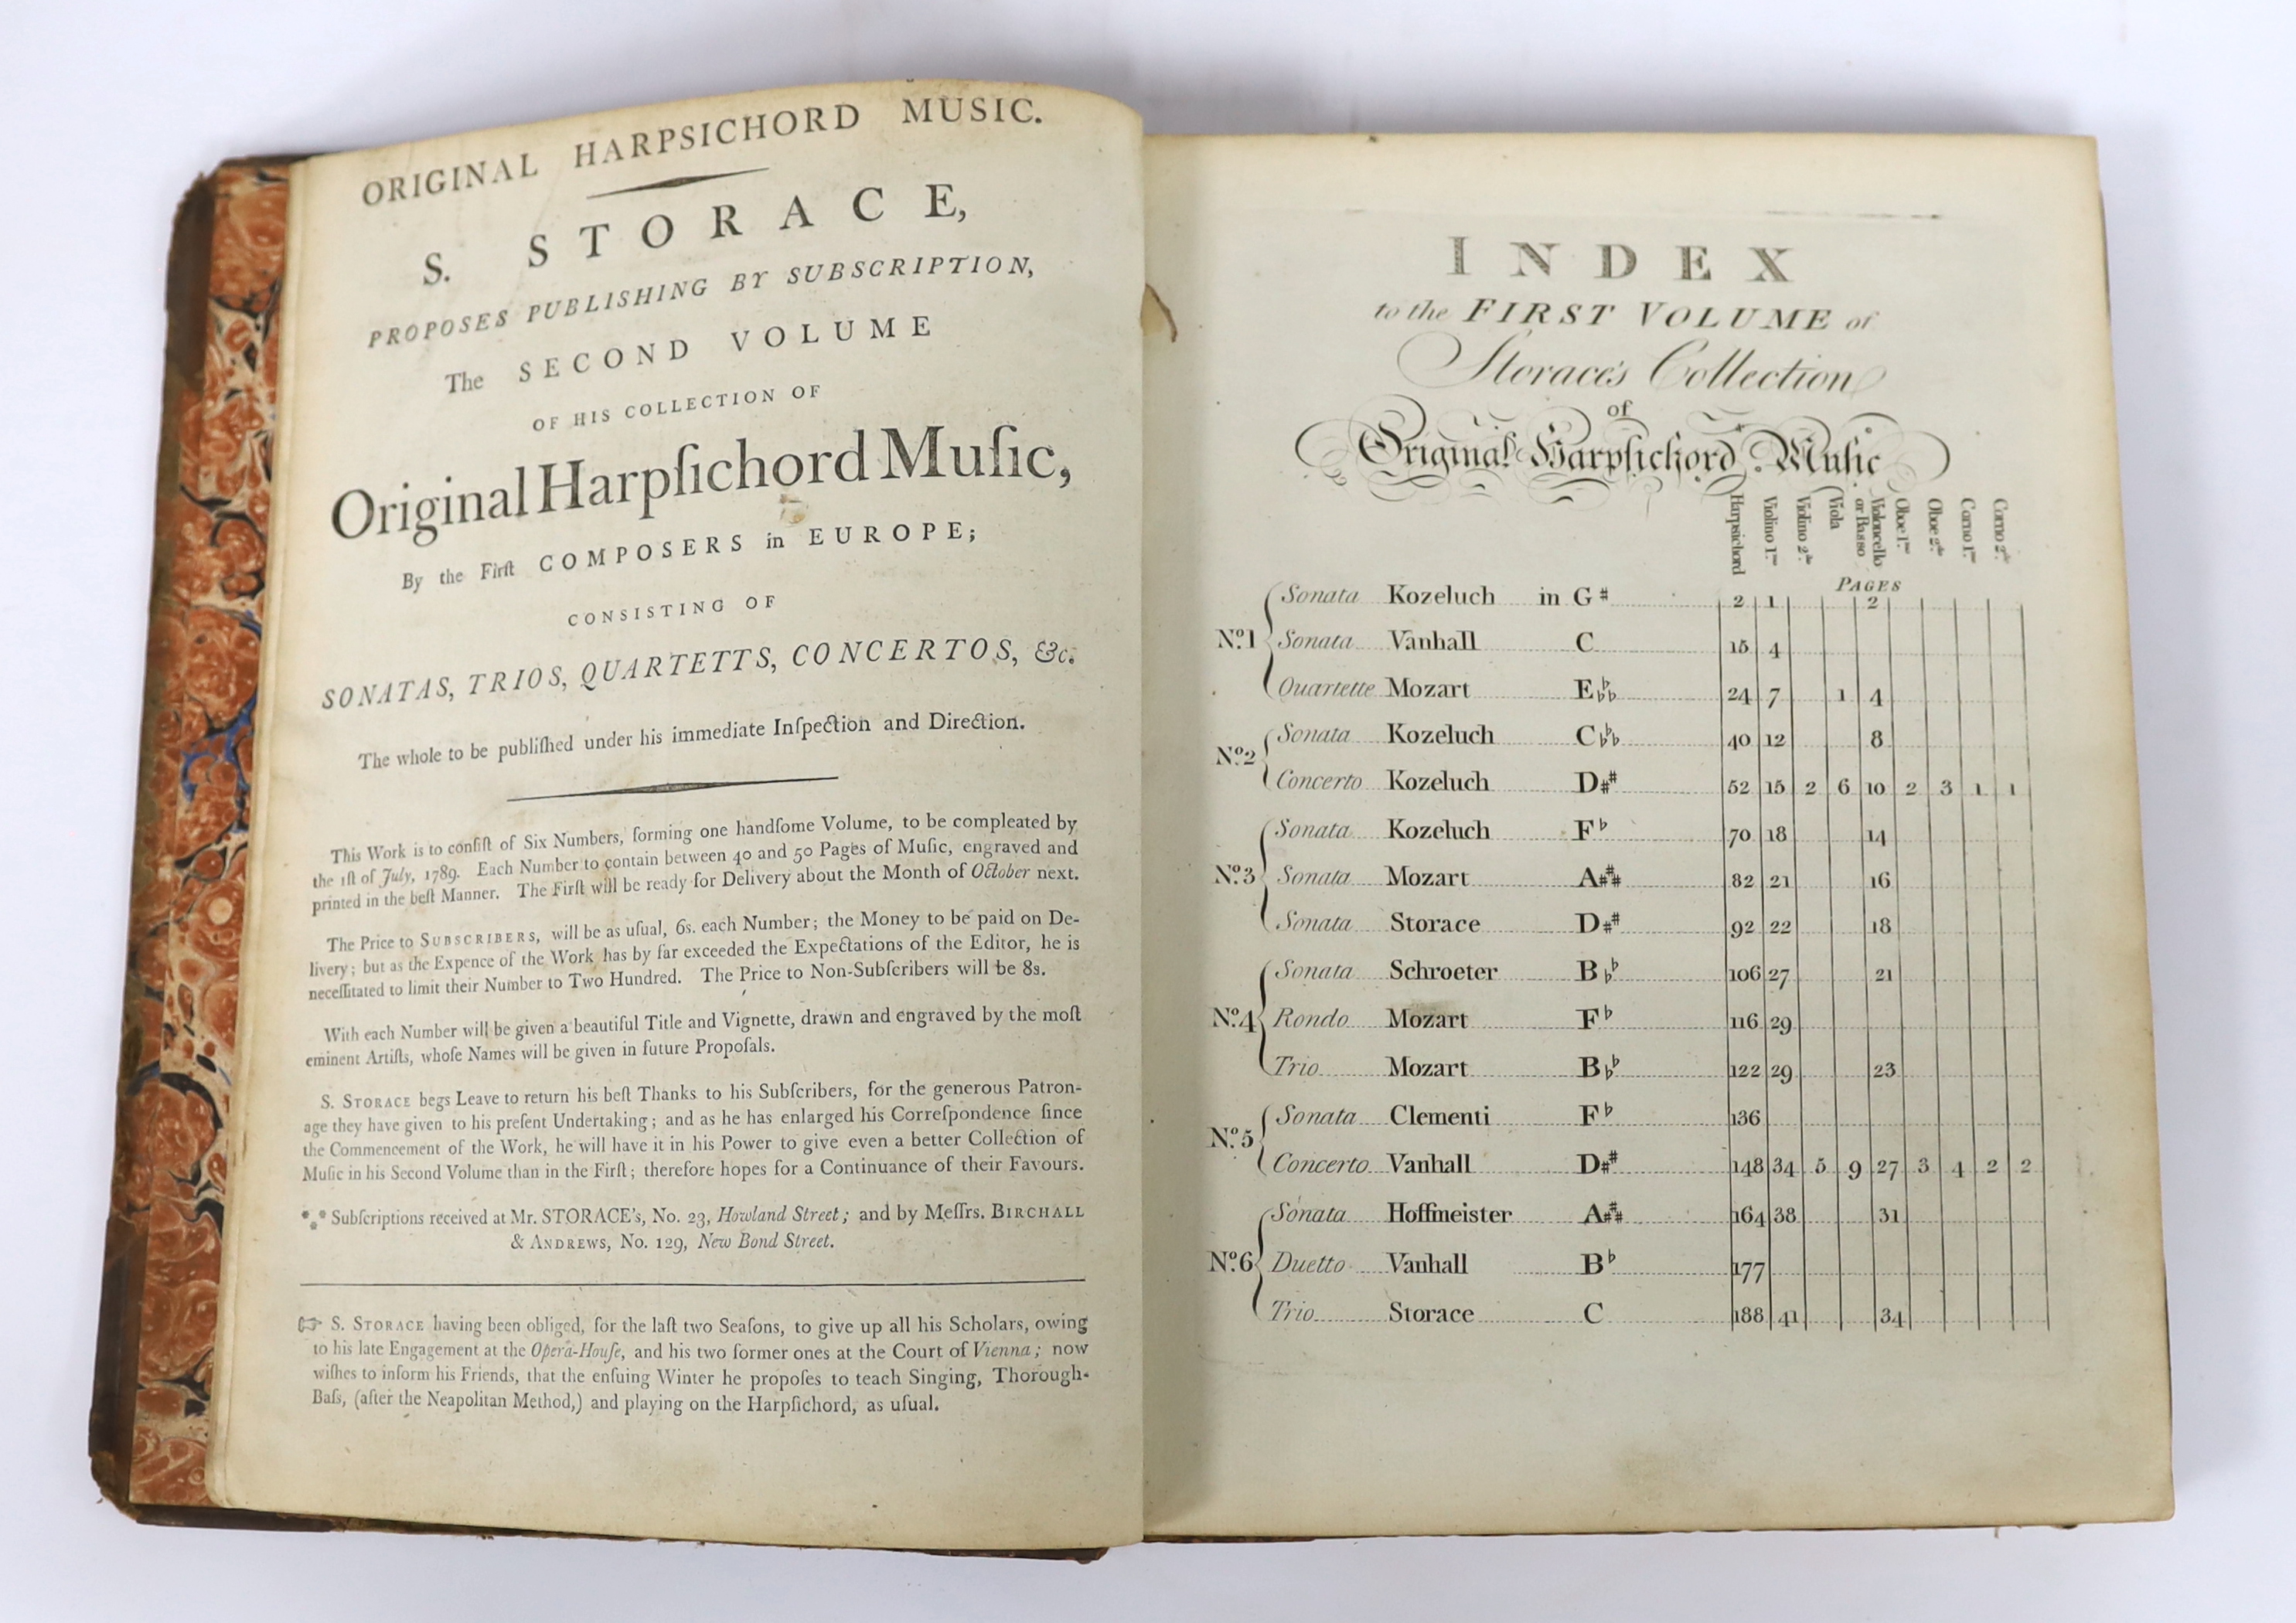 ORIGINAL HARPSICHORD MUSIC.
S. STORACE,
PROPOSES PUBLISHING BY SUBSCRIPTION,
The SECOND VOLUME
OF HIS COLLECTION OF
Original Harpſichord Muſic,
By the Firſt COMPOSERS in EUROPE;
CONSISTING OF
SONATAS, TRIOS, QUARTETTS, CONCERTOS, &c.
The whole to be publiſhed under his immediate Inſpection and Direction.
This Work is to conſiſt of Six Numbers, forming one handſome Volume, to be compleated by
the 1ſt of July, 1789. Each Number to contain between 40 and 50 Pages of Muſic, engraved and
printed in the beſt Manner. The Firſt will be ready for Delivery about the Month of October next.
The Price to SUBSCRIBERS, will be as uſual, 6s. each Number; the Money to be paid on De-
livery; but as the Expence of the Work has by far exceeded the Expectations of the Editor, he is
neceſſitated to limit their Number to Two Hundred. The Price to Non-Subſcribers will be 8s.
With each Number will be given a beautiful Title and Vignette, drawn and engraved by the moſt
eminent Artiſts, whoſe Names will be given in future Propoſals.
S. STORACE begs Leave to return his beſt Thanks to his Subſcribers, for the generous Patron-
age they have given to his preſent Undertaking; and as he has enlarged his Correſpondence ſince
the Commencement of the Work, he will have it in his Power to give even a better Collection of
Muſic in his Second Volume than in the Firſt; therefore hopes for a Continuance of their Favours.
*** Subſcriptions received at Mr. STORACE's, No. 23, Howland Street; and by Meſſrs. BIRCHALL
& ANDREWS, No. 129, New Bond Street.
☞ S. STORACE having been obliged, for the laſt two Seaſons, to give up all his Scholars, owing
to his late Engagement at the Opera-Houſe, and his two former ones at the Court of Vienna; now
wiſhes to inform his Friends, that the enſuing Winter he propoſes to teach Singing, Thorough-
Baſs, (after the Neapolitan Method,) and playing on the Harpſichord, as uſual.
INDEX
to the FIRST VOLUME of
Storace's Collection
of
Original Harpſichord Muſic
Harpsichord Violino 1.mo Violino 2.do Viola Violoncello or Basso Oboe 1.mo Oboe 2.do Corno 1.mo Corno 2.do
PAGES
No.1 Sonata Kozeluch in G♯ 2 1 2
Sonata Vanhall C 15 4
Quartette Mozart E♭♭♭ 24 7 1 4
No.2 Sonata Kozeluch C♭♭♭ 40 12 8
Concerto Kozeluch D♯♯ 52 15 2 6 10 2 3 1 1
No.3 Sonata Kozeluch F♭ 70 18 14
Sonata Mozart A♯♯♯ 82 21 16
Sonata Storace D♯♯ 92 22 18
No.4 Sonata Schroeter B♭♭ 106 27 21
Rondo Mozart F♭ 116 29
Trio Mozart B♭♭ 122 29 23
No.5 Sonata Clementi F♭ 136
Concerto Vanhall D♯♯ 148 34 5 9 27 3 4 2 2
No.6 Sonata Hoffmeister A♯♯♯ 164 38 31
Duetto Vanhall B♭ 177
Trio Storace C 188 41 34